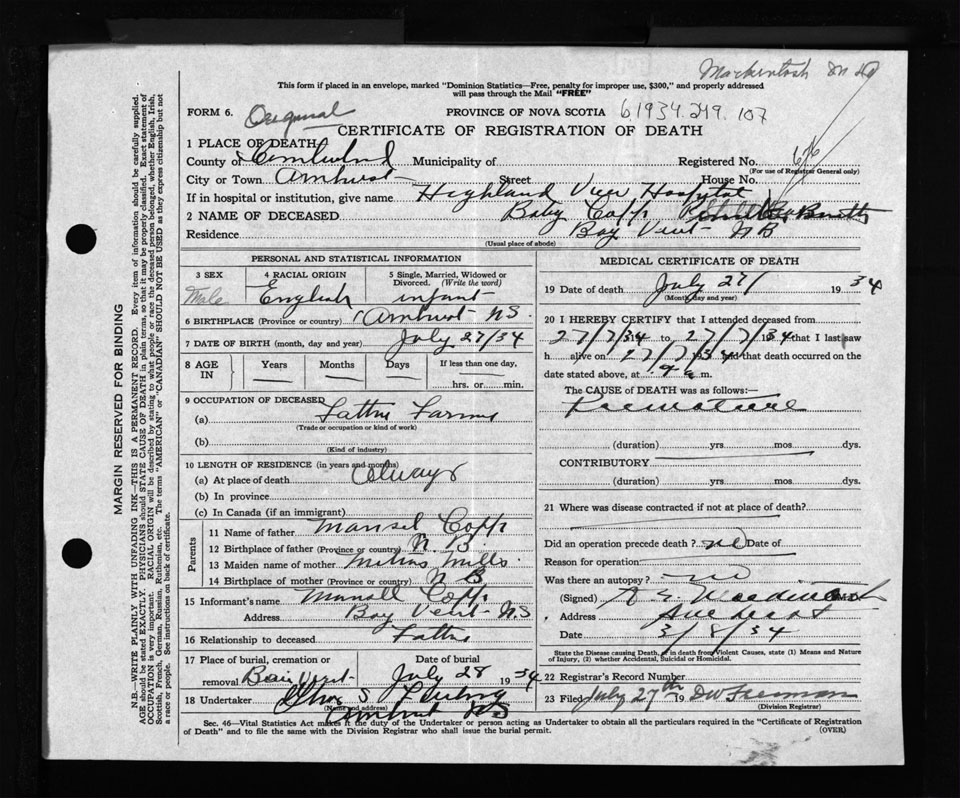 Mackintosh
This form if placed in an envelope, marked "Dominion Statistics—Free, penalty for improper use, $300," and properly addressed
will pass through the Mail "FREE"
FORM 6. Original PROVINCE OF NOVA SCOTIA 61934.249.107
CERTIFICATE OF REGISTRATION OF DEATH
1 PLACE OF DEATH
County of Cumberland Municipality of Registered No. 66
(For use of Registrar General only)
City or Town Amherst Street House No.
If in hospital or institution, give name Highland View Hospital
2 NAME OF DECEASED Baby Copp
Residence Bay Vert NB
(Usual place of abode)
PERSONAL AND STATISTICAL INFORMATION
3 SEX 4 RACIAL ORIGIN 5 Single, Married, Widowed or Divorced. (Write the word)
Male English infant
6 BIRTHPLACE (Province or country) Amherst N.S.
7 DATE OF BIRTH (month, day and year) July 27/34
8 AGE IN Years Months Days If less than one day,
hrs. or min.
9 OCCUPATION OF DECEASED
(a) Father Farmer
(Trade or occupation or kind of work)
(b)
(Kind of industry)
10 LENGTH OF RESIDENCE (in years and months)
(a) At place of death Always
(b) In province
(c) In Canada (if an immigrant)
Parents
11 Name of father Mansel Copp
12 Birthplace of father (Province or country) N B
13 Maiden name of mother Mills
14 Birthplace of mother (Province or country) N B
15 Informant's name Copp
Address Bay Vert N S
16 Relationship to deceased Father
17 Place of burial, cremation or Date of burial
removal July 28 1934
18 Undertaker S
(Name and address)
Amherst NS
MEDICAL CERTIFICATE OF DEATH
19 Date of death July 27/ 1934
(Month, day and year)
20 I HEREBY CERTIFY that I attended deceased from
27/7/34 to 27/7/34 that I last saw
h alive on 27/7/34 and that death occurred on
date stated above, at m.
The CAUSE of DEATH was as follows:
Premature
(duration) yrs. mos. dys.
CONTRIBUTORY
(duration) yrs. mos. dys.
21 Where was disease contracted if not at place of death?
Did an operation precede death? no Date of
Reason for operation
Was there an autopsy? no
(Signed)
Address Amherst
Date 3/8/34
State the Disease causing Death, or in death from Violent Causes, state (1) Means and Nature
of Injury, (2) whether Accidental, Suicidal or Homicidal.
22 Registrar's Record Number
23 Filed July 27th 19 DW Freeman
(Division Registrar)
Sec. 46—Vital Statistics Act makes it the duty of the Undertaker or person acting as Undertaker to obtain all the particulars required in the "Certificate of Registration
of Death" and to file the same with the Division Registrar who shall issue the burial permit. (OVER)
MARGIN RESERVED FOR BINDING
N.B.—WRITE PLAINLY WITH UNFADING INK—THIS IS A PERMANENT RECORD. Every item of information should be carefully supplied.
AGE should be stated EXACTLY. PHYSICIANS should STATE CAUSE OF DEATH in plain terms, so that it may be properly classified. Exact statement of
OCCUPATION is very important. RACIAL ORIGIN will be described by stating to what people or race the deceased person belonged, whether English, Irish,
Scottish, French, German, Russian, Ruthenian, etc. The terms "AMERICAN" or "CANADIAN" SHOULD NOT BE USED as they express citizenship but not
a race or people. See instructions on back of certificate.